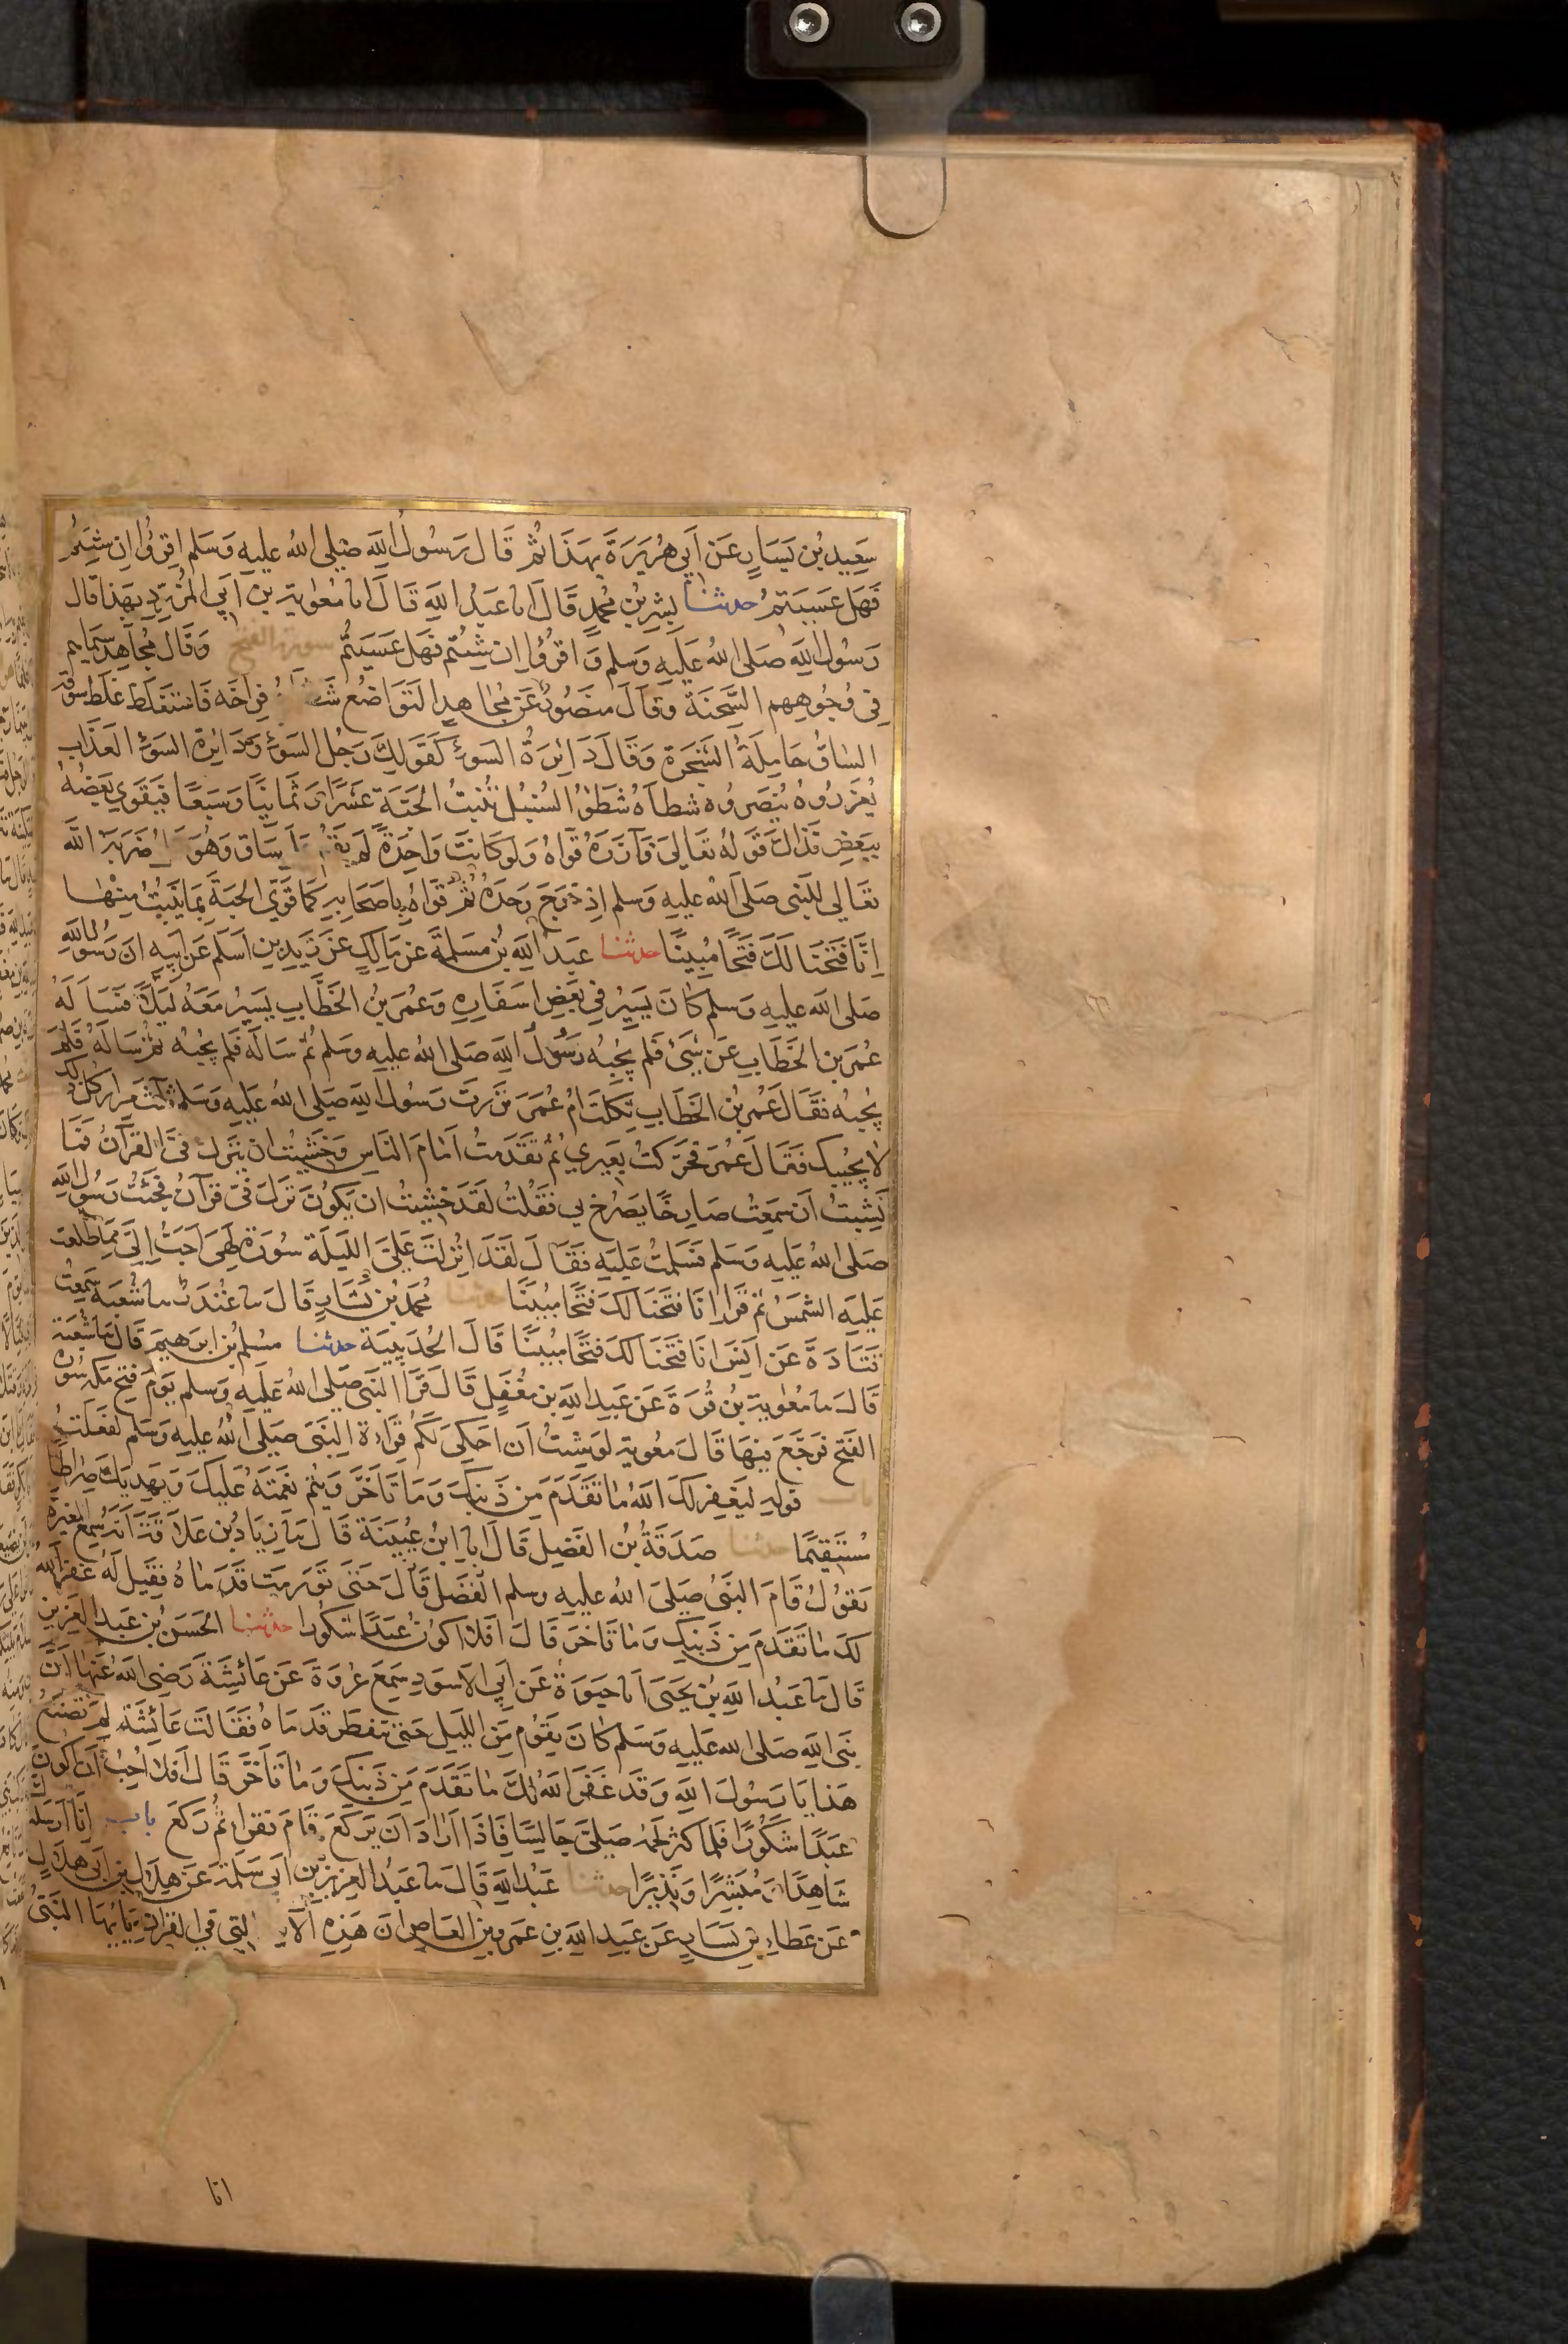 سَعِيدِ بْنِ يَسَارٍ عَنْ اَبِي هُرَيَرَةَ بِهَذَا ثُمَّ قَالَ رَسُولُ اللَّهِ صَلى اللهُ عليهِ وَسَلم اِقرَؤُا اِن شِئتُم
فَهَل عَسَيتُم حدثنا بِشرِ بْنُ مُحمدٍ قَالَ انا عَبدُ اللَّهِ قَالَ انا مُعٰوية بن اَبِي المُزَرِّدِ بِهَذا قال
رَسُول اللهِ صَلى اللهُ عَلَيهِ وسلم وَاقرؤُا اِن شِئتُم فَهَل عَسَيتُم سورة الفتح وَقَال مُجاَهِد سِيمَاهم
فِى وُجُوهِهِم السَّحنَةُ وقَالَ منصُورٌ عَن مُجَاهِدٍ التَوَاضُع شَطأَهُ فِرَاخَه فَاستَغلَظ غلظَ سوقه
السَاقُ حَامِلَةُ الشَجَرَةِ وَقَالَ دَائِرَةُ السَوءِ كَقَولِكَ رَجُل السَوءِ وَدَائِرة السَوءِ العَذَاب
يُعَزِّرُوهُ يُنصَرُوه شطأهُ شَطؤُ السُنبُل تُنبِتُ الحَبَّة عَشرًا وَثَمَانِيًا وَسَبعًا فَيَقوي بَعضُهُ
بِبَعضٍ فذاكَ قَولهُ تعَالى فآزَرَهُ قَوَّاهُ وَلَو كَانَت وَاحِدَةً لَم تَقُم عَلَى سَاق وَهُوَ مَثَل ضَرَبَهُ اللَّه
تعَالي للنَبى صَلى اللهُ عليهِ وسلم اِذ خَرَجَ وَحدَهُ ثُم قَوَّاهُ بِاصحَابِهِ كمَا قَوَّى الحَبَّةَ بِمَا يَنبُتُ مِنهَا
اِنَّا فَتَحنَا لَكَ فَتحًا مُبِينًا حدثنا عَبدُ اللَّهِ بْنُ مَسلَمةَ عن مَالِكٍ عَن زَيدِ بنِ اَسلَم عَن اَبِيهِ انَّ رَسُول اللهِ
صَلى الله عليهِ وسلم كانَ يَسِيرُ فِي بَعضِ اَسفَارِهِ وَعُمَر بنُ الخَطَّابِ يَسيرُ مَعَهُ لَيلًا فَسَاَلَهُ
عُمَر بن الخَطَابِ عَن شَىءٍ فَلم يُجِبهُ رَسُولُ اللهِ صَلى اللهُ عليهِ وسلم ثُمَّ سَالَهُ فَلم يُجبهُ ثُمَّ سَالَهُ فَلَم
يُجبهُ فقَالَ عُمَر بنُ الخَطَابِ ثكِلَت امُّ عُمَرَ نَزرتَ رَسُول اللهِ صَلى اللهُ عَلَيهِ وسلم ثلث مَرارٍ كل ذلك
لا يُجيبك فقَالَ عُمَر فحَرَّكتُ بَعِيري ثُم تقَدمتُ اَمَامَ النَاسِ وَخَشِيتُ ان يَنزِلَ فِىَّ القرآنُ فَمَا
نَشِبتُ اَن سَمِعتُ صَارِخًا يَصرُخ بي فَقُلتُ لَقَد خَشِيتُ ان يَكُونَ نَزَلَ فِىَّ قرآنٌ فَجئتُ رَسُول اللهِ
صَلى اللهُ عَلَيهِ وسلم فَسَلمتُ عَليهِ فقَالَ لَقَد انُزِلَت عَلَىَّ اللَيلَةَ سُورَةٌ لَهِىَ اَحَبُّ اِلَىَّ مِمَّا طَلَعَت
عَلَيهِ الشَمسُ ثُمَّ قَرَا اِنَا فتَحَنَا لَكَ فَتحًا مُبِينًا حدثنا مُحَمدُ بْنُ بَشَارٍ قَالَ نا غُندَرٌ نا شُعبَة سَمِعتُ
قَتَادَةَ عَن اَنَسٍ اِنَا فَتَحَنَا لكَ فتحًا مُبِينًا قَالَ الحُدَيبِيَة حدثنا مُسلِمُ بْنُ ابرَهِيمَ قَالَ نَا شُعبَة
قَالَ نا مُعٰويةَ بنُ قُرةَ عَن عَبدِ اللهِ بن مُغَفلٍ قَالَ قَرَا النَبى صَلى اللهُ عَلَيهِ وسلم يَومَ فتحِ مَكة سُورَة
الفَتحِ فرجَّعَ فِيهَا قَالَ مُعوية لَو شِئتُ اَن اَحكِىَ لَكُم قِرَاءَةَ النَبى صَلَى اللهُ عليهِ وَسلم لفعَلتُ
باب قولهِ لِيَغفِر لكَ اللهُ ما تَقَدَّمَ مِن ذَنبِكَ وَمَا تَاَخَّرَ وَيُتم نِعمَتَهُ عَليكَ وَيَهدِيَكَ صِرَاطًا
مُستَقِيمًا حدثنا صَدَقَةُ بْنُ الفَضلِ قَالَ انا ابنُ عُيَينَةَ قَالَ نَا زِيَادُ بن عِلاَقَةَ اَنَّهُ سَمِعَ المغيرة
يَقولُ قَامَ النَبىُّ صَلَى اللهُ عليهِ وسلم الفَضل قَالَ حَتى تَورمَت قَدَمَاهُ فقِيل لَهُ غَفَرَ اللهُ
لكَ مَا تَقَدَمَ مِن ذَنبِكَ وَمَا تَاخرَ قَالَ اَفلاَ اكونُ عَبدًا شكُورًا حدثنا الحَسَنُ بن عَبد العَزيزِ
قَالَ نا عَبدُ اللهِ بْنُ يَحيَى انا حيوَةُ عَن اَبِي الاَسوَدِ سَمِعَ عُروَةَ عَن عَائِشَةَ رَضِى اللهُ عَنهَا اَنَّ
نَبى اللهِ صَلى الله عَلَيهِ وسَلم كانَ يَقُوم مِنَ اللَيلِ حَتى تَفطَّر قَدَمَاهُ فقَالَت عَائِشَة لِمَ تَصنَعُ
هَذا يَا رَسُولَ اللهِ وَقَد غَفَرَ اللهُ لكَ ما تَقَدَمَ مِن ذَنبِكَ وَمَا تَاَخَّرَ قَالَ اَفَلاَ اُحِبُّ اَن اكُونَ
عَبدًا شَكُورًا فَلَمَا كثرَ لَحمُه صَلَّى جَالِسًا فَاِذَا اَرَادَ اَن يَركَعَ قَامَ فقرا ثُم رَكعَ باب اِنَّا اَرسَلنٰكَ
شَاهِدًا وَمُبَشِرًا وَنَذِيرًا حدثنا عَبدُ اللهِ قَالَ نا عَبدُ العَزِيز بن اَبى سَلمَة عَن هِلاَلِ بن اَبى هِلاَلٍ
عَن عَطاءِ بن يَسَارٍ عَن عَبدِ اللهِ بن عَمرو بن العَاصِ اَنَّ هَذِهِ الآيَة التِى فِي القرآنِ يَايُهَا النَبىُّ
انا